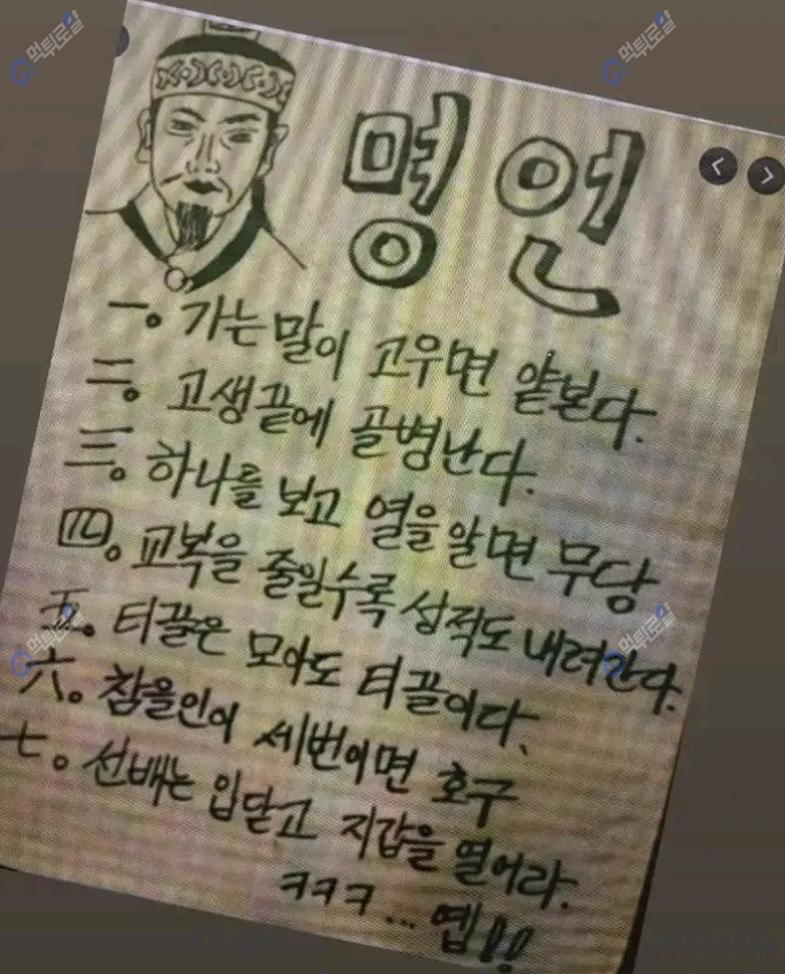 먹튀로얄
먹튀로얄
명언
一。 가는 말이 고우면 얕본다.
二。 고생끝에 골병난다.
三。 하나를 보고 열을 알면 무당
四。 교복을 줄일수록 성적도 내려간다.
五。 티끌은 모아도 티끌이다.
먹튀로얄
먹튀로얄
六。 참을인이 세번이면 호구
七。 선배는 입닫고 지갑을 열어라.
ㅋㅋㅋ... 옙!!